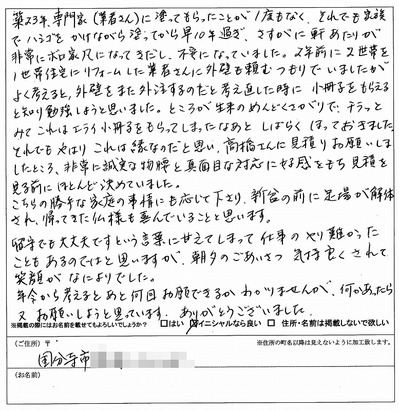 築23年、専門家(業者さん)に塗ってもらったことが1度もなく、それでも家族
でハシゴをかけながら塗ってから早10年過ぎ、さすがに軒あたりが
非常にボロ家屋になってきだし、不安になっていました。2年前に2世帯を
1世帯住宅にリフォームした業者さんに外壁も頼むつもりでいましたが
よく考えると、外壁をまた外注するのだと考え直した時に小冊子をもらえる
と知り勉強しようと思いました。ところが生来のめんどくさがりで、そうっと
みてこれはエライ小冊子をもらってしまったなあと しばらく ほっておきました。
それでもやはりこれは縁なのだと思い、高橋さんに見積りお願いしま
したところ、非常に誠実な物腰と真面目な対応に好感をもち見積を
見る前にほとんど決めていました。
こちらの勝手な家庭の事情にも応じて下さり、新盆の前に足場が解体
され、帰ってきた仏様も喜んでいることと思います。
留守でも大丈夫ですという言葉に甘えてしまって仕事のやり難かった
こともあるのではと思いますが、朝夕のごあいさつ 気持良くされて
笑顔がなによりでした。
年令から考えるとあと何回お願いできるかわかりませんが、何かあったら
又お願いしようと思っています。ありがとうございました。
※掲載の際にはお名前を載せてもよろしいでしょうか? □はい ☑イニシャルなら良い □住所・名前は掲載しないで欲しい
(ご住所) 〒 ※住所の町名以降は見えないように加工致します。
国分寺市
(お名前)